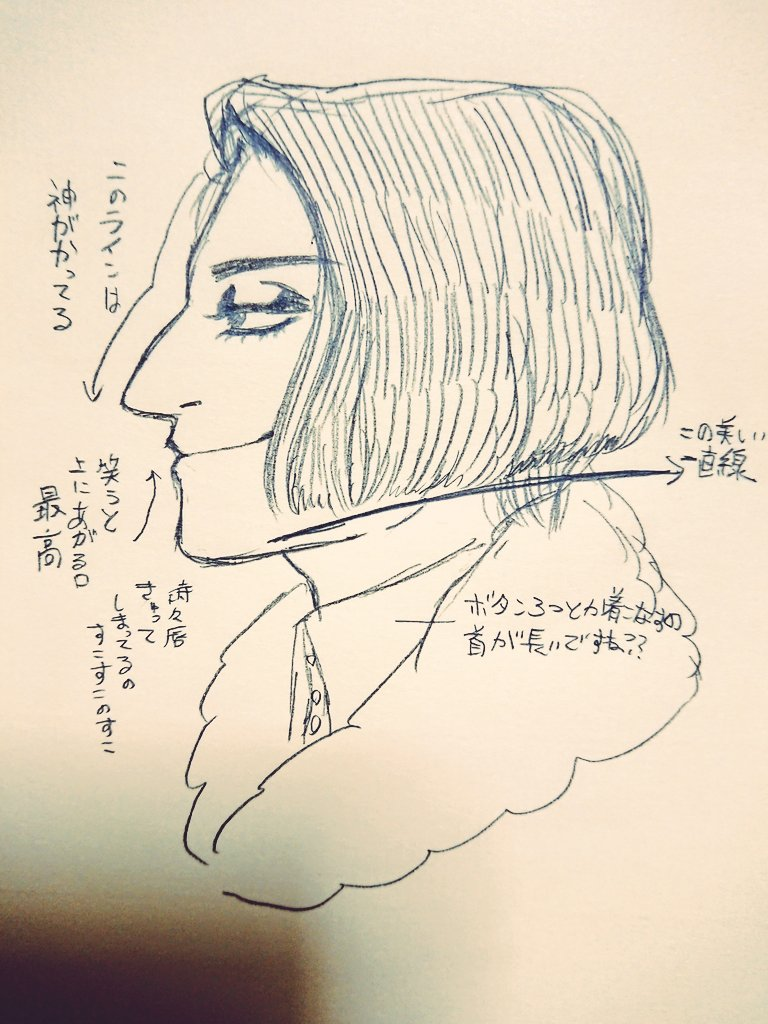 このラインは
神がかってる
笑うと
上にあがる口
最高
時々唇
きゅって
しまってるの
すこすこのすこ
この美しい
一直線
ボタン3つとか着こなすの
首が長いですね??